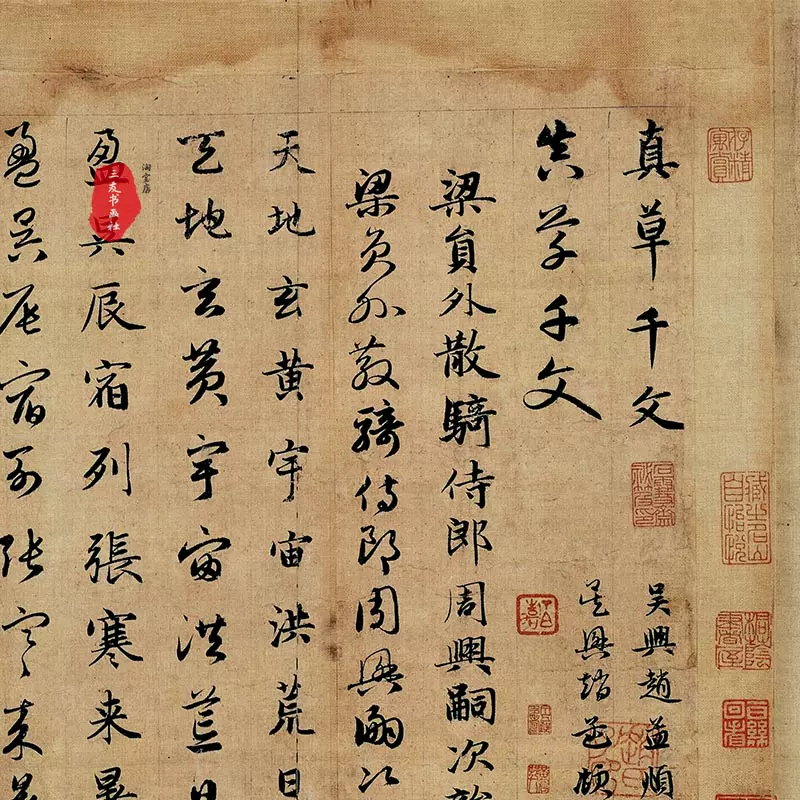 真草千文
吴興趙孟頫
真草千文
吴興趙孟頫
梁員外散騎侍郎周興嗣次韻
梁員外散騎侍郎周興嗣次
天地玄黄宇宙洪荒日
天地玄黄宇宙洪荒日
淘宝店
三友书画社
盈昃辰宿列張寒来暑
盈昃辰宿列張寒来暑